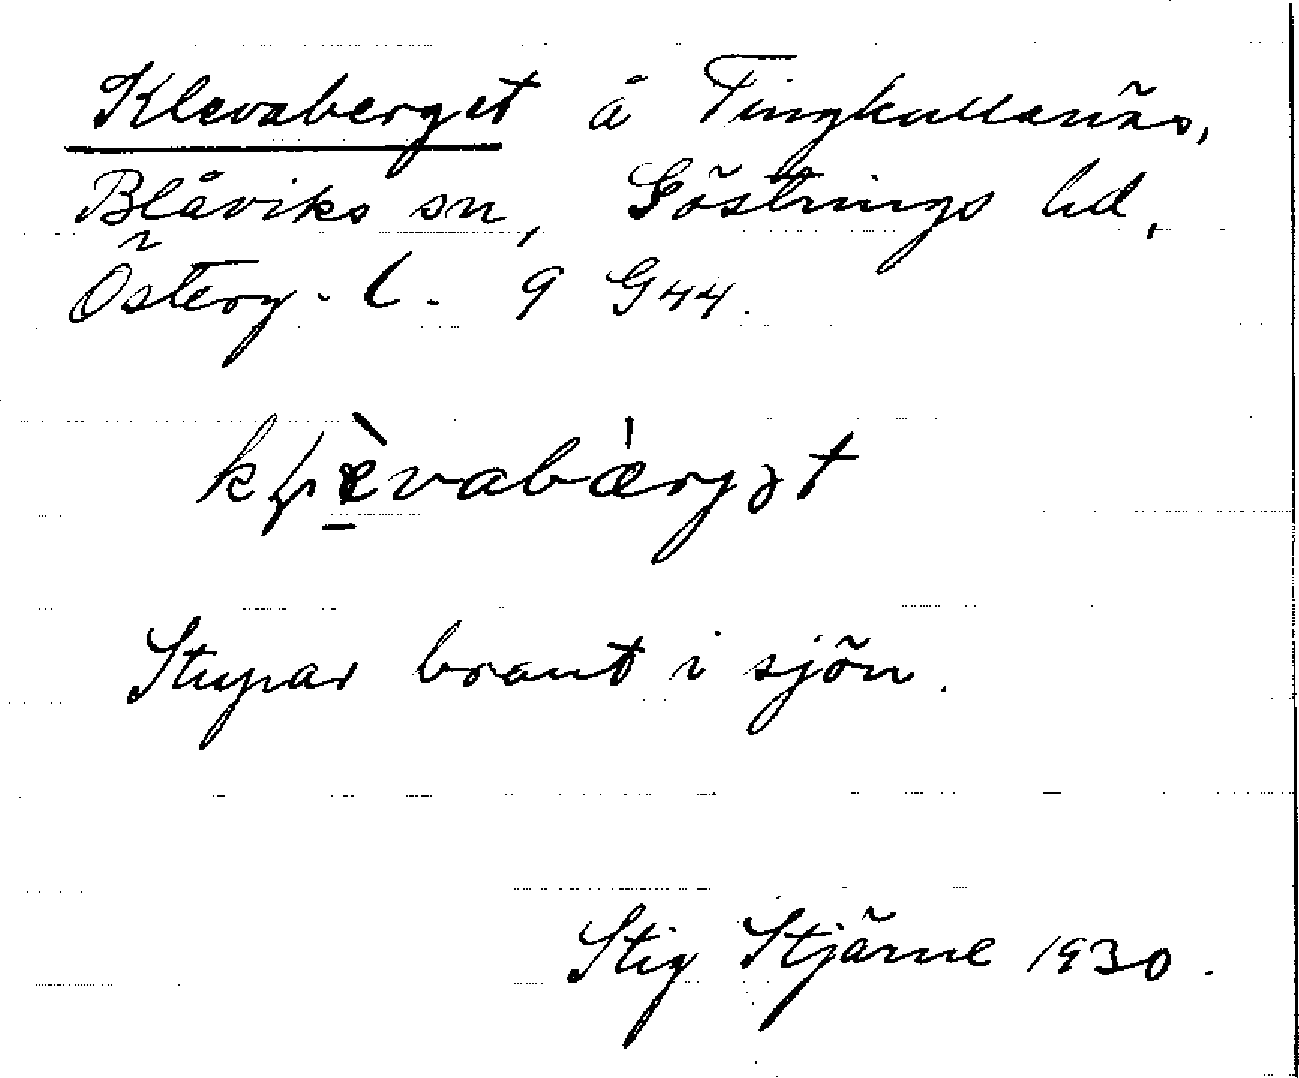 Klevaberget å Tingkullanäs,
Blåviks sn, Göstrings hd,
Österg. l. 9 G44.
Stupar brant i sjön.
Stig Stjärne 1930.